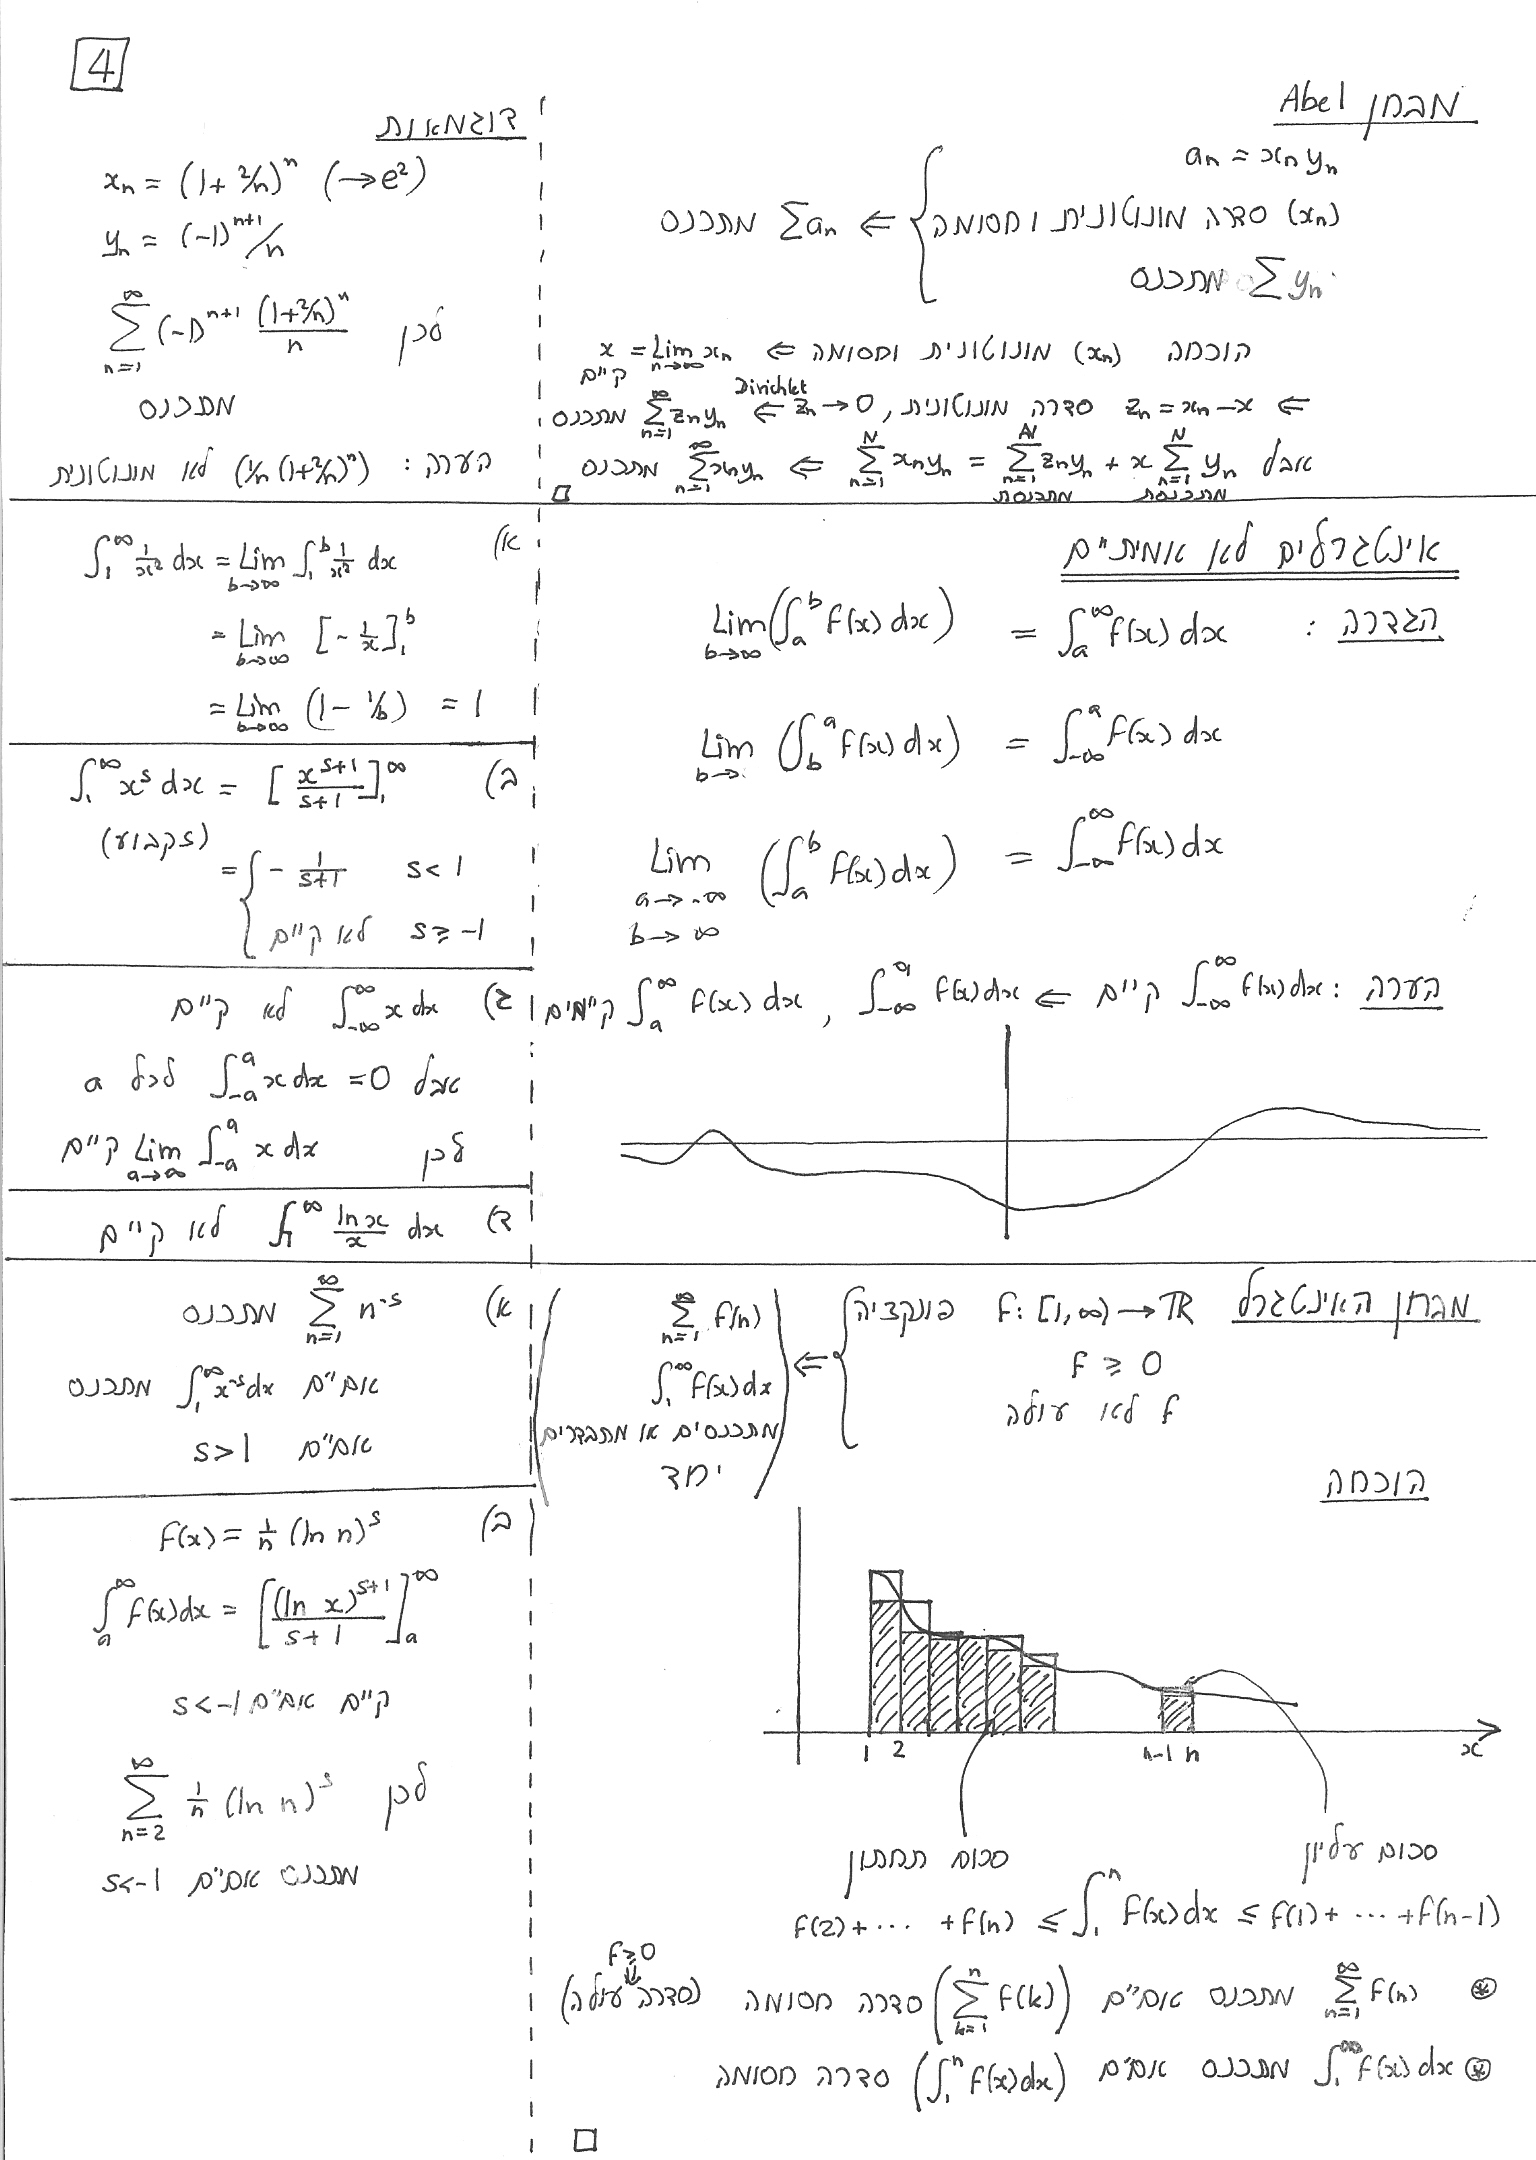 4
מבחן Abel
aₙ = xₙyₙ
(xₙ) סדרה מונוטונית וחסומה
∑yₙ מתכנס
⇐ ∑aₙ מתכנס
הוכחה (xₙ) מונוטונית וחסומה ⇐ x = Lim n→∞ xₙ קיים
⇐ zₙ = xₙ − x סדרה מונוטונית, zₙ → 0 ⇐ Dirichlet ∑ₙ₌₁^∞ zₙyₙ מתכנס
אבל ∑ₙ₌₁^N xₙyₙ = ∑ₙ₌₁^N zₙyₙ + x ∑ₙ₌₁^N yₙ ⇐ ∑ₙ₌₁^∞ xₙyₙ מתכנס
מתכנסת מתכנסת
□
דוגמאות
xₙ = (1+2/n)ⁿ (→e²)
yₙ = (−1)ⁿ⁺¹/n
לכן ∑ₙ₌₁^∞ (−1)ⁿ⁺¹ (1+2/n)ⁿ/n
מתכנס
הערה: (1/n (1+2/n)ⁿ) לא מונוטונית
אינטגרלים לא אמיתיים
הגדרה: ∫ₐ^∞ f(x) dx = Lim b→∞ (∫ₐ^b f(x) dx)
∫₋∞^a f(x) dx = Lim b→ (∫_b^a f(x) dx)
∫₋∞^∞ f(x) dx = Lim a→−∞ b→∞ (∫ₐ^b f(x) dx)
הערה: ∫₋∞^∞ f(x)dx קיים ⇐ ∫₋∞^a f(x)dx , ∫ₐ^∞ f(x) dx קיימים
א) ∫₁^∞ 1/x² dx = Lim b→∞ ∫₁^b 1/x² dx
= Lim b→∞ [−1/x]₁^b
= Lim b→∞ (1 − 1/b) = 1
ב) ∫₁^∞ x^s dx = [x^(s+1)/(s+1)]₁^∞
(s קבוע)
= { −1/(s+1) s<1
לא קיים s ≥ −1
ג) ∫₋∞^∞ x dx לא קיים
אבל ∫₋ₐ^a x dx = 0 לכל a
לכן Lim a→∞ ∫₋ₐ^a x dx קיים
ד) ∫₁^∞ ln x/x dx לא קיים
מבחן האינטגרל
f: [1,∞) → ℝ פונקציה
f ≥ 0
f לא עולה
⇐
∑ₙ₌₁^∞ f(n)
∫₁^∞ f(x)dx
מתכנסים או מתבדרים
יחד
הוכחה
1 2 n−1 n x
סכום תחתון
סכום עליון
f(2)+ ⋯ +f(n) ≤ ∫₁ⁿ f(x)dx ≤ f(1)+ ⋯ +f(n−1)
⊛ ∑ₙ₌₁^∞ f(n) מתכנס אם״ם (∑ₖ₌₁ⁿ f(k)) סדרה חסומה (סדרה עולה)
f≥0 ⇓
⊛ ∫₁^∞ f(x)dx מתכנס אם״ם (∫₁ⁿ f(x)dx) סדרה חסומה
□
א) ∑ₙ₌₁^∞ n^−s מתכנס
אם״ם ∫₁^∞ x^−s dx מתכנס
אם״ם s>1
ב) f(x) = 1/n (ln n)^s
∫ₐ^∞ f(x)dx = [(ln x)^(s+1)/(s+1)]ₐ^∞
קיים אם״ם s<−1
לכן ∑ₙ₌₂^∞ 1/n (ln n)^s
מתכנס אם״ם s<−1